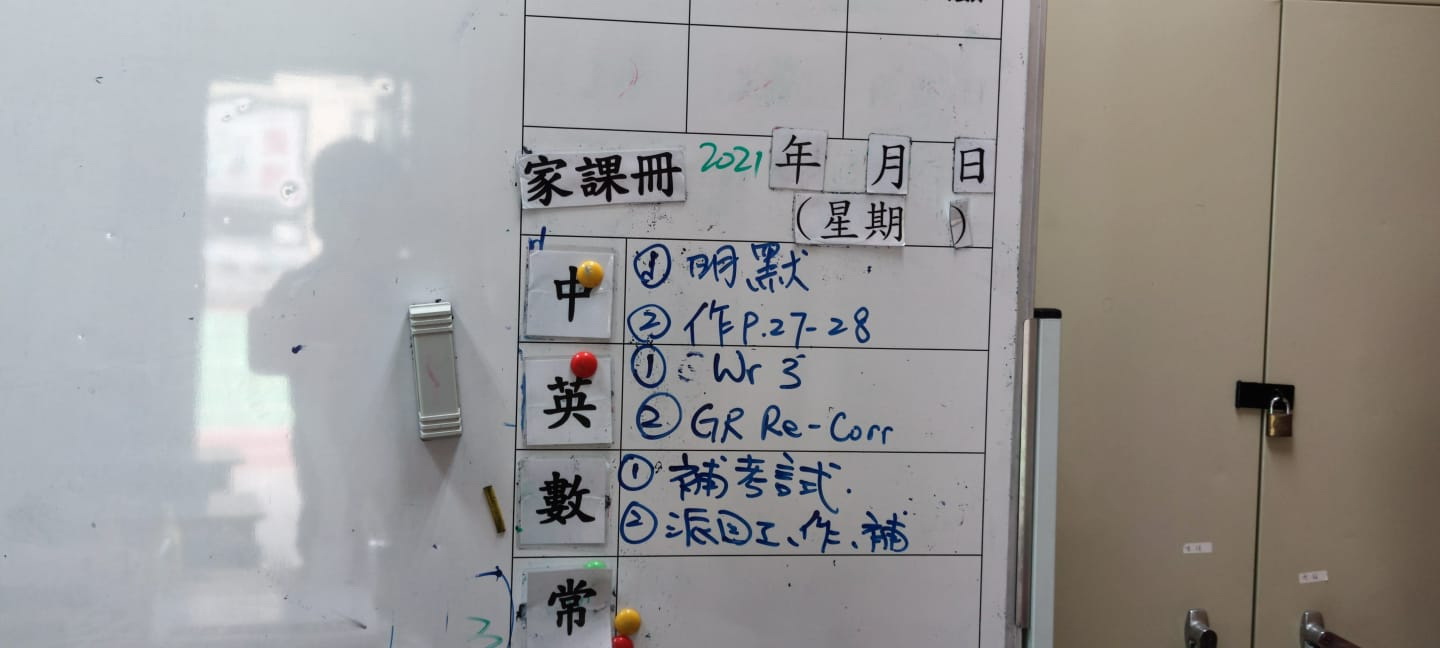 家課冊 2021年 月 日
(星期 )
中
① 明默
② 作P.27-28
英
① Wr 3
② GR Re-Corr
數
① 補考試.
② 派回工、作、補
常
3